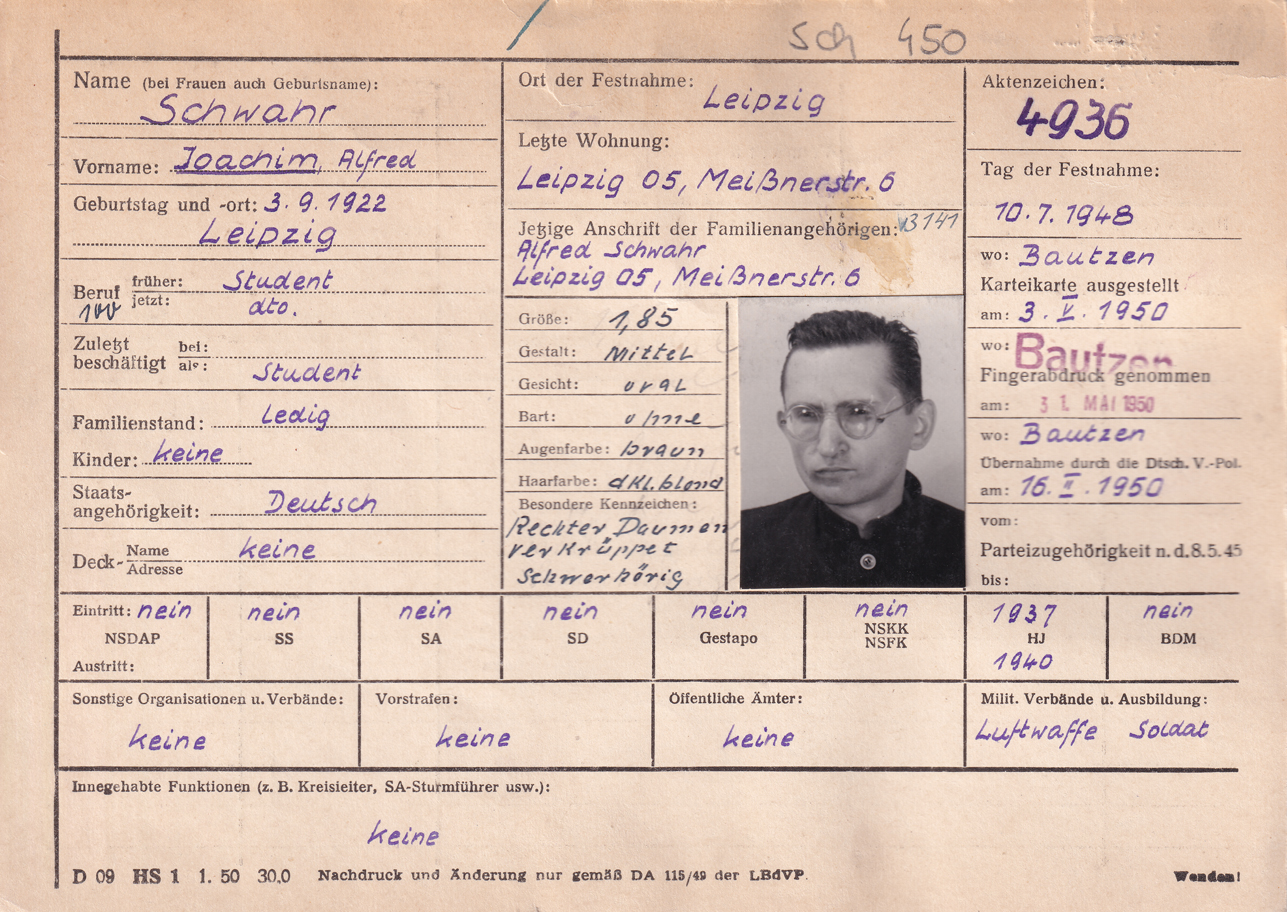 Sch 450
Name (bei Frauen auch Geburtsname):
Schwahr
Vorname: Joachim, Alfred
Geburtstag und -ort: 3. 9. 1922
Leipzig
Beruf früher: Student
jetzt: dto.
100
Zuletzt beschäftigt bei:
als: Student
Familienstand: Ledig
Kinder: keine
Staats-
angehörigkeit: Deutsch
Deck- Name keine
Adresse
Ort der Festnahme: Leipzig
Letzte Wohnung:
Leipzig 05, Meißnerstr. 6
Jetzige Anschrift der Familienangehörigen:
Alfred Schwahr
Leipzig 05, Meißnerstr. 6
Größe: 1,85
Gestalt: Mittel
Gesicht: oval
Bart: ohne
Augenfarbe: braun
Haarfarbe: dkl. blond
Besondere Kennzeichen:
Rechter Daumen
verkrüppet
Schwerhörig
Aktenzeichen:
4936
Tag der Festnahme:
10. 7. 1948
wo: Bautzen
Karteikarte ausgestellt
am: 3. V. 1950
wo: Bautzen
Fingerabdruck genommen
am: 31. MAI 1950
wo: Bautzen
Übernahme durch die Dtsch. V.-Pol.
am: 16. II. 1950
vom:
Parteizugehörigkeit n. d. 8. 5. 45
bis:
Eintritt: nein nein nein nein nein nein 1937 nein
NSDAP SS SA SD Gestapo NSKK NSFK HJ BDM
Austritt: 1940
Sonstige Organisationen u. Verbände: Vorstrafen: Öffentliche Ämter: Milit. Verbände u. Ausbildung:
keine keine keine Luftwaffe Soldat
Innegehabte Funktionen (z. B. Kreisleiter, SA-Sturmführer usw.):
keine
D 09 HS 1 1. 50 30,0 Nachdruck und Änderung nur gemäß DA 115/49 der LBdVP. Wenden!